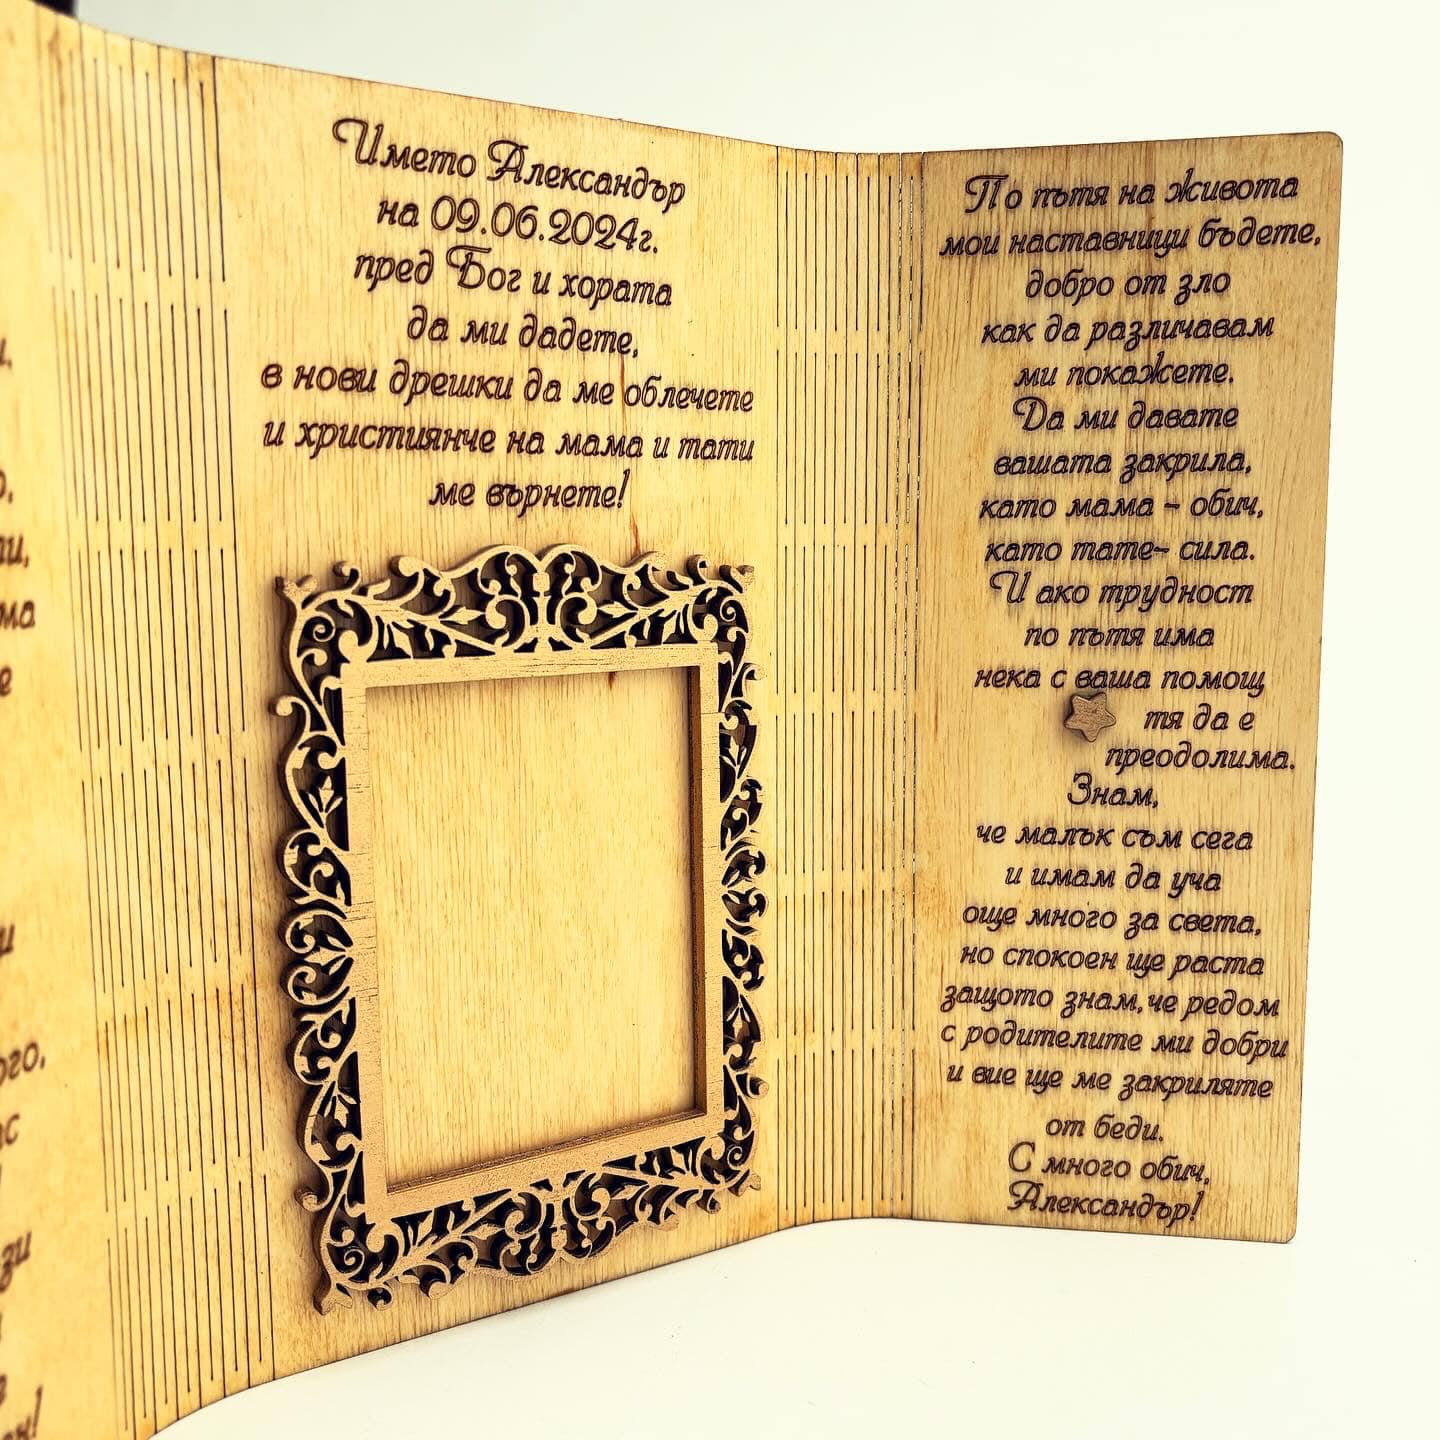 Името Александър
на 09.06.2024г.
пред Бог и хората
да ми дадете,
в нови дрешки да ме облечете
и християнче на мама и тати
ме върнете!
По пътя на живота
мои наставници бъдете,
добро от зло
как да различавам
ми покажете.
Да ми давате
вашата закрила,
като мама - обич,
като тате- сила.
И ако трудност
по пътя има
нека с ваша помощ
тя да е
преодолима.
Знам,
че малък съм сега
и имам да уча
още много за света,
но спокоен ще раста
защото знам, че редом
с родителите ми добри
и вие ще ме закриляте
от беди.
С много обич,
Александър!